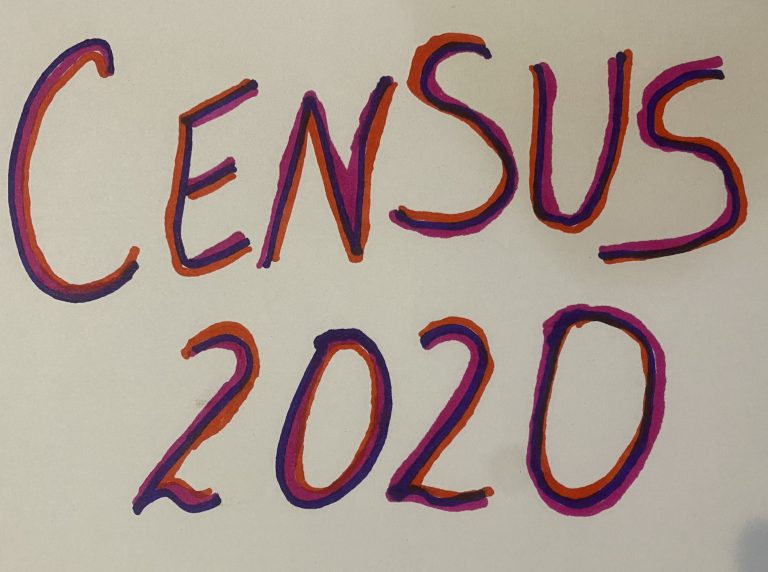 CENSUS
2020